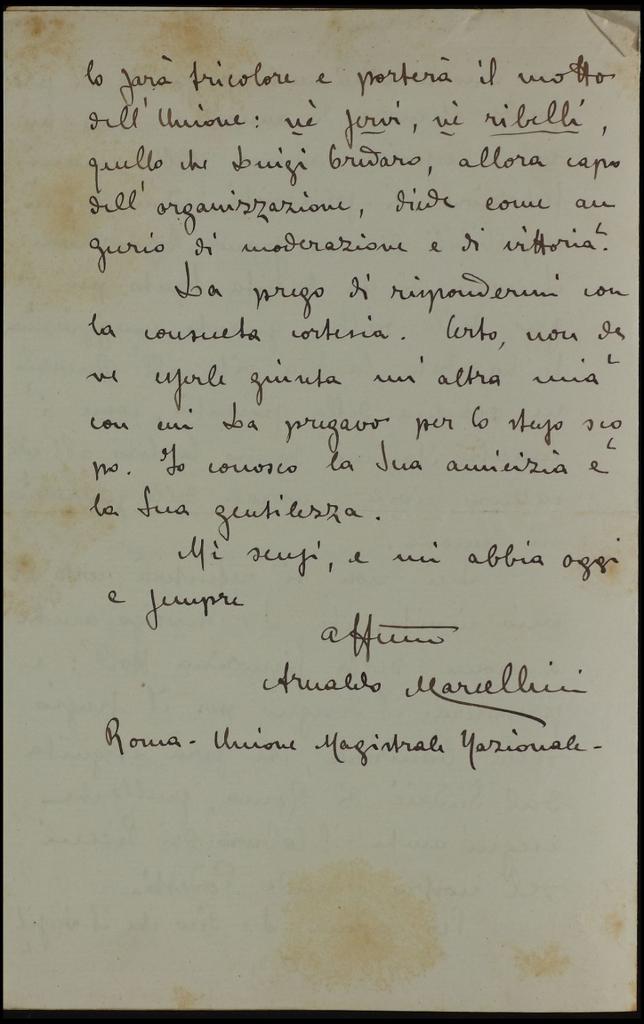 lo sarà tricolore e porterà il motto
dell'Unione: nè servi, nè ribelli,
quello che Luigi Credaro, allora capo
dell'organizzazione, diede come au
gurio di moderazione e di vittoria.
La prego di rispondermi con
la consueta cortesia. Certo, non de
ve esserle giunta un'altra mia
con cui La pregavo per lo stesso sco
po. Io conosco la Sua amicizia e
la Sua gentilezza.
Mi scusi, e mi abbia oggi
e sempre
affmo
Arnaldo Marcellini
Roma - Unione Magistrale Nazionale -